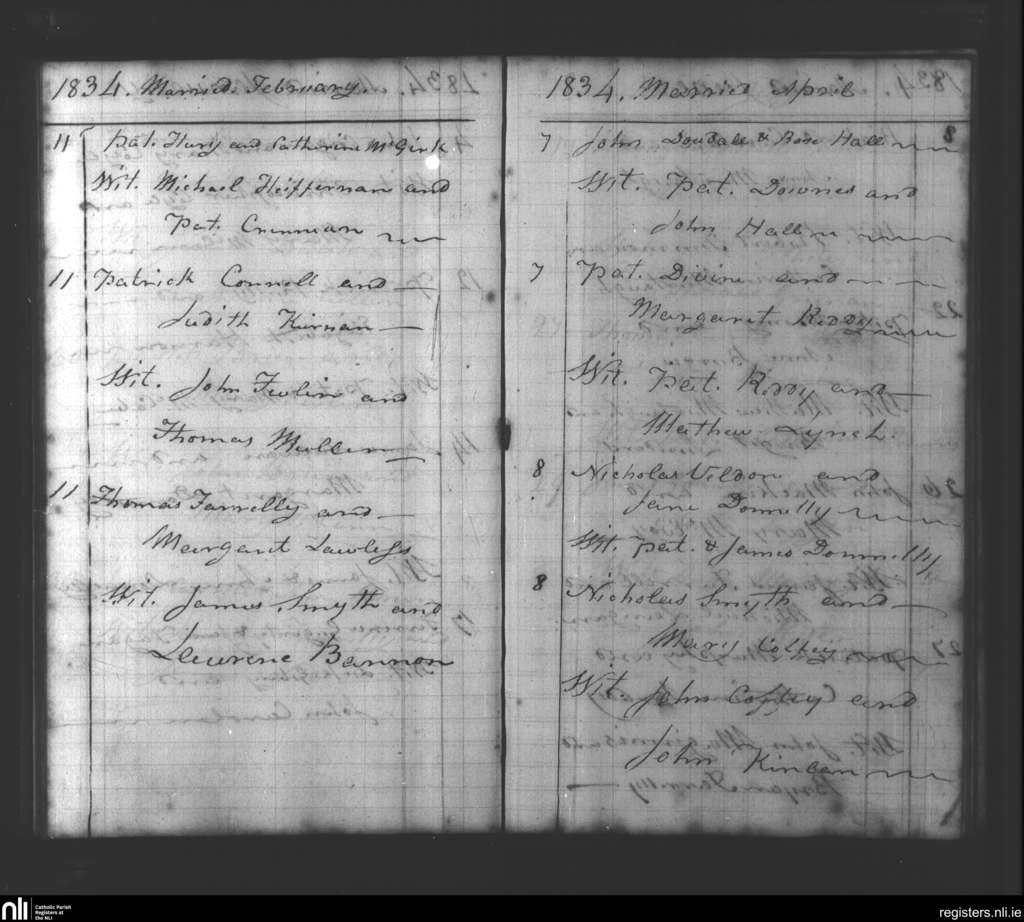 1834. Married February.
11 Pat. Hury and Catherine McGirk
Wit. Michael Heiffernan and
Pat. Crinnian
11 Patrick Connell and
Judith Kirnan
Wit. John and
Thomas Mullen
11 Thomas Farrelly and
Margaret Lawless
Wit. James Smyth and
Laurence Bannon
1834. Married April
7 John Dowdall & Rose Hall
Wit. Pat. Downes and
John Hall
7 Pat. Divine and
Margaret Roddy
Wit. Pat. Roddy and
Mathew Lynch.
8 Nicholas Veldon and
Jane Donnelly
Wit. Pat. & James Donnelly
8 Nicholas Smyth and
Mary Coffey
Wit. John Coffey and
John Kinlan
nli Catholic Parish
Registers at
the NLI
registers.nli.ie